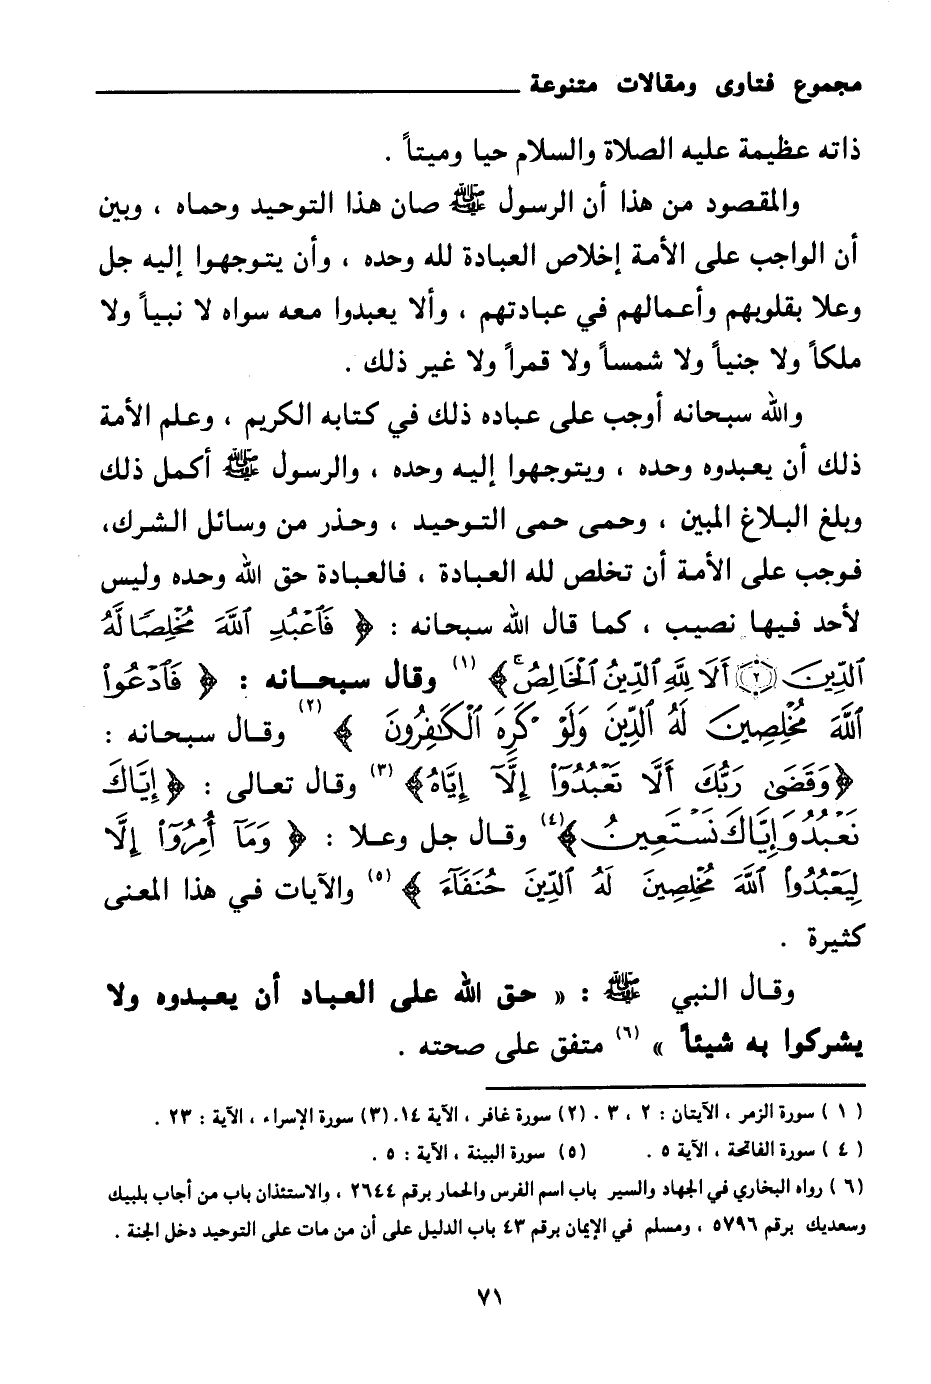 مجموع فتاوى ومقالات متنوعة
ذاته عظيمة عليه الصلاة والسلام حيا وميتاً .
والمقصود من هذا أن الرسول ﷺ صان هذا التوحيد وحماه ، وبين
أن الواجب على الأمة إخلاص العبادة لله وحده ، وأن يتوجهوا إليه جل
وعلا بقلوبهم وأعمالهم في عبادتهم ، وألا يعبدوا معه سواه لا نبياً ولا
ملكاً ولا جنياً ولا شمساً ولا قمراً ولا غير ذلك .
والله سبحانه أوجب على عباده ذلك في كتابه الكريم ، وعلم الأمة
ذلك أن يعبدوه وحده ، ويتوجهوا إليه وحده ، والرسول ﷺ أكمل ذلك
وبلغ البلاغ المبين ، وحمى حمى التوحيد ، وحذر من وسائل الشرك،
فوجب على الأمة أن تخلص لله العبادة ، فالعبادة حق الله وحده وليس
لأحد فيها نصيب ، كما قال الله سبحانه : ﴿ فَٱعْبُدِ ٱللَّهَ مُخْلِصًا لَّهُ
ٱلدِّينَ ۝٢ أَلَا لِلَّهِ ٱلدِّينُ ٱلْخَالِصُ ۚ﴾ (١) وقال سبحانه : ﴿ فَٱدْعُوا۟
ٱللَّهَ مُخْلِصِينَ لَهُ ٱلدِّينَ وَلَوْ كَرِهَ ٱلْكَٰفِرُونَ ﴾ (٢) وقال سبحانه :
﴿وَقَضَىٰ رَبُّكَ أَلَّا تَعْبُدُوٓا۟ إِلَّآ إِيَّاهُ﴾ (٣) وقال تعالى : ﴿ إِيَّاكَ
نَعْبُدُ وَإِيَّاكَ نَسْتَعِينُ﴾(٤) وقال جل وعلا : ﴿ وَمَآ أُمِرُوٓا۟ إِلَّا
لِيَعْبُدُوا۟ ٱللَّهَ مُخْلِصِينَ لَهُ ٱلدِّينَ حُنَفَآءَ ﴾ (٥) والآيات في هذا المعنى
كثيرة .
وقال النبي ﷺ : « حق الله على العباد أن يعبدوه ولا
يشركوا به شيئاً » (٦) متفق على صحته .
( ١ ) سورة الزمر ، الآيتان : ٢ ، ٣ . (٢) سورة غافر ، الآية ١٤. (٣) سورة الإسراء ، الآية : ٢٣ .
( ٤ ) سورة الفاتحة ، الآية ٥ . (٥) سورة البينة ، الآية : ٥ .
(٦ ) رواه البخاري في الجهاد والسير باب اسم الفرس والحمار برقم ٢٦٤٤ ، والاستئذان باب من أجاب بلبيك
وسعديك برقم ٥٧٩٦ ، ومسلم في الإيمان برقم ٤٣ باب الدليل على أن من مات على التوحيد دخل الجنة .
٧١